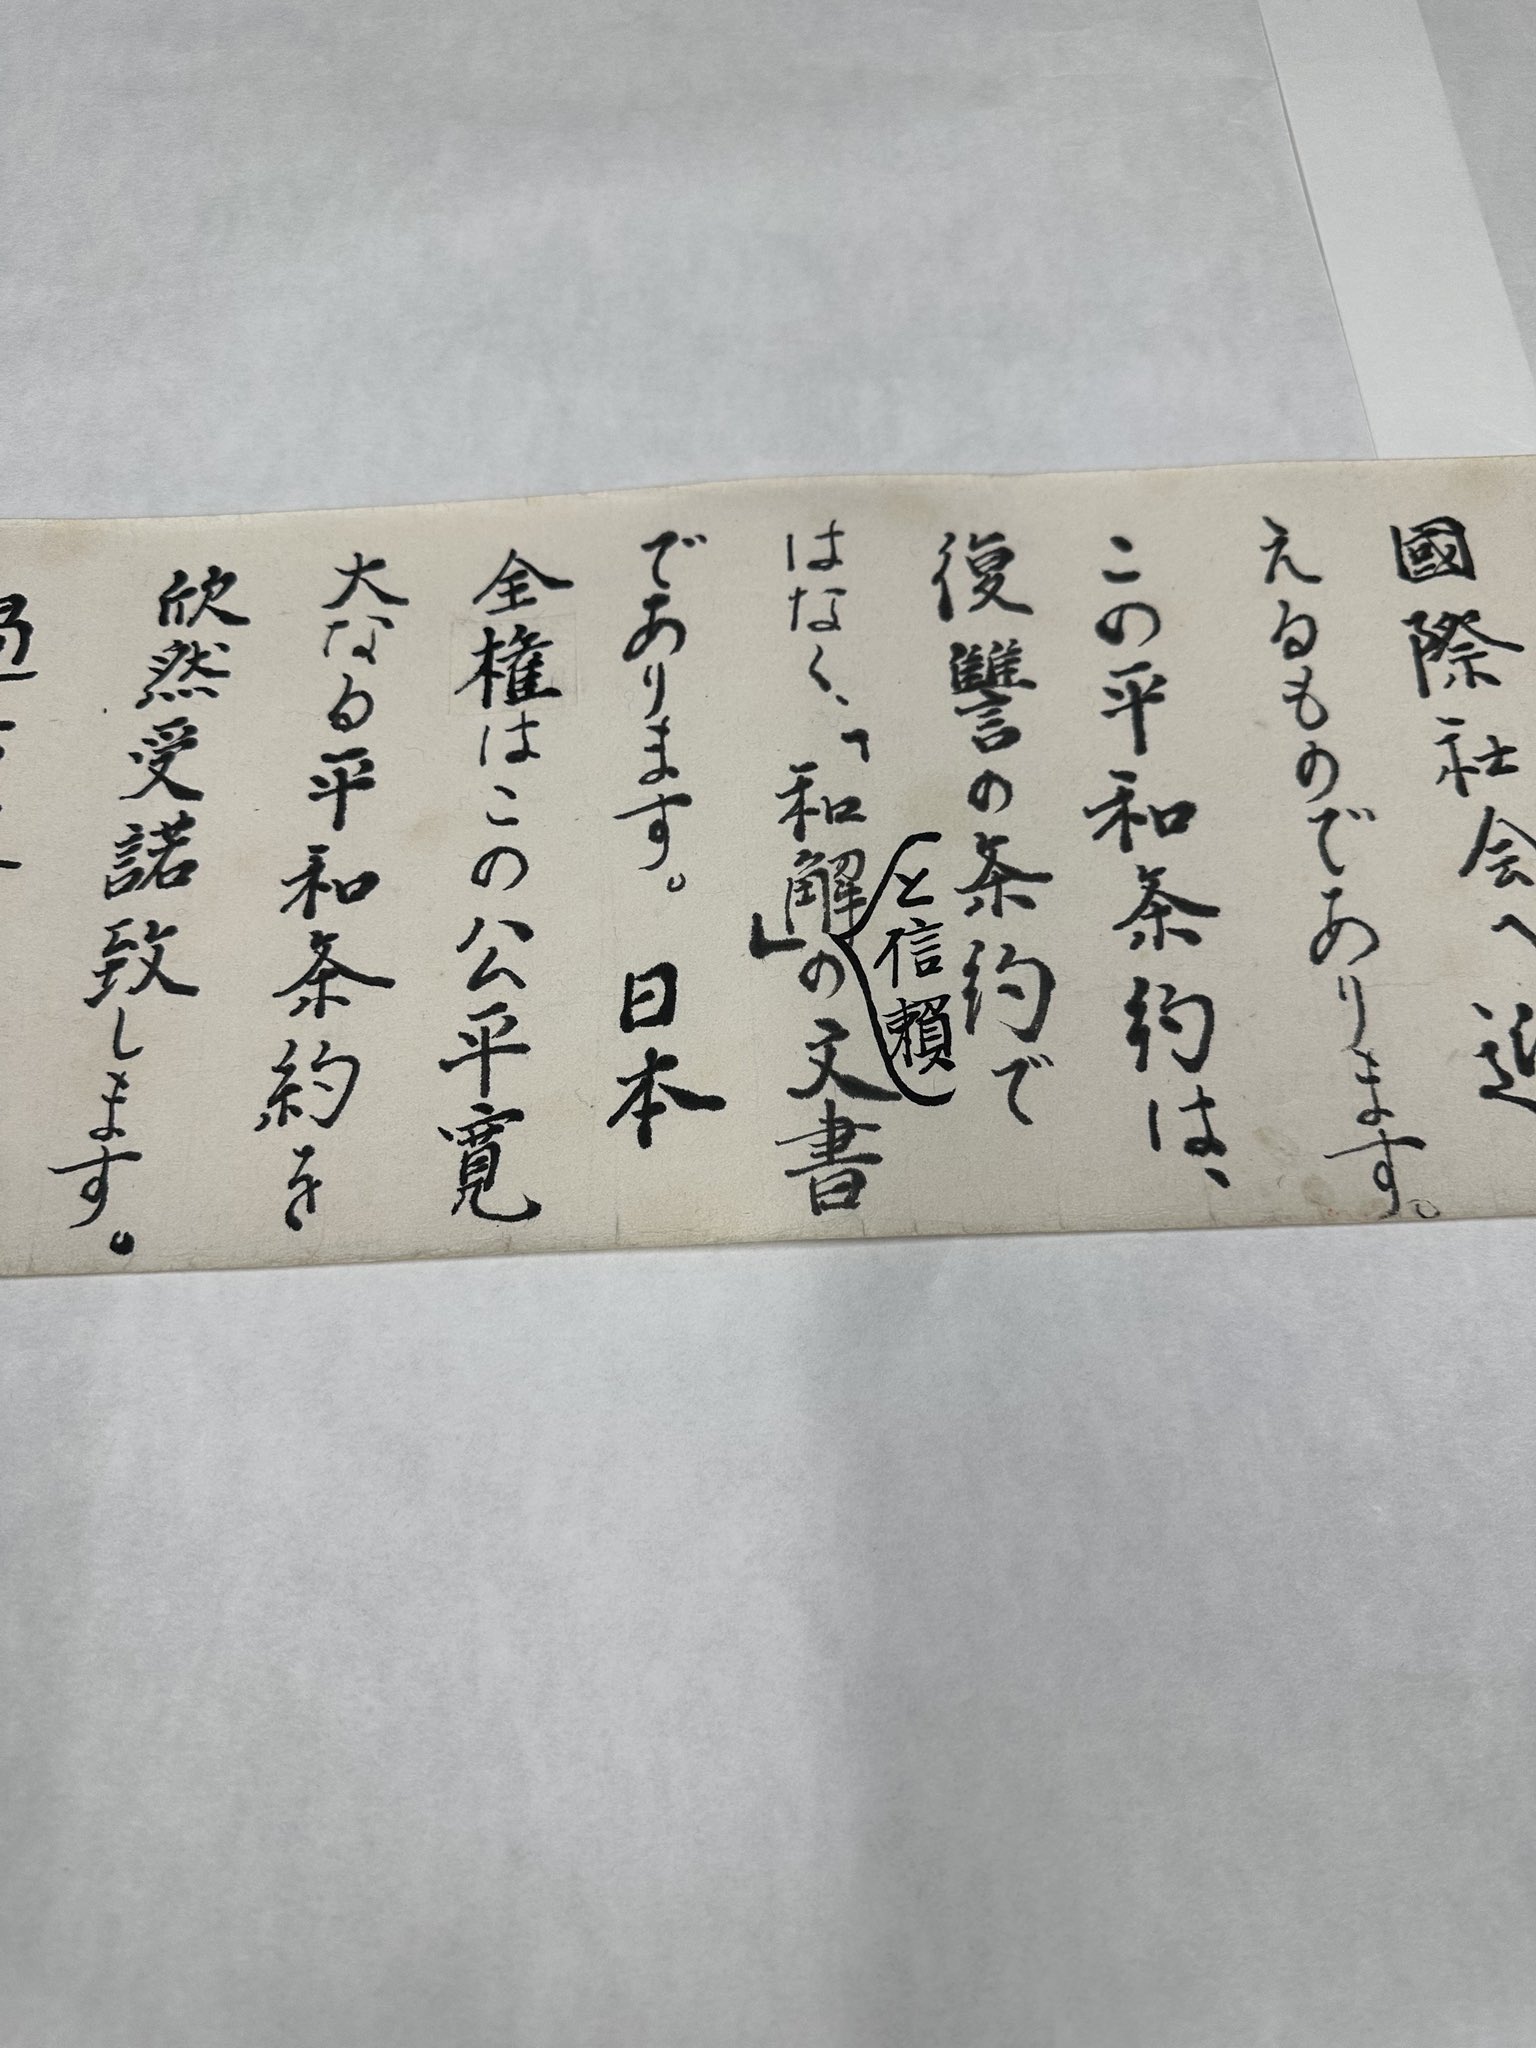 國際社会へ迎
えるものであります。
この平和条約は、
復讐の条約で
はなく、「和解」の文書
と信賴
であります。 日本
全権はこの公平寛
大なる平和条約を
欣然受諾致します。
過